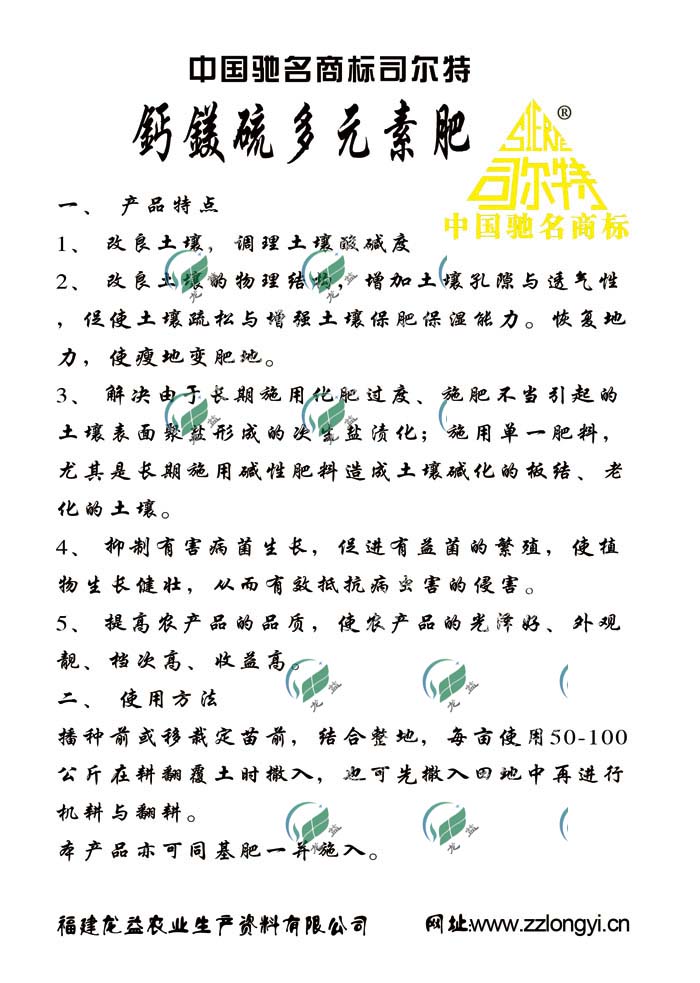 中国驰名商标司尔特
鈣鎂硫多元素肥
SIERTE
®
司尔特
中国驰名商标
一、 产品特点
1、 改良土壤，调理土壤酸碱度
2、 改良土壤的物理结构，增加土壤孔隙与透气性
，促使土壤疏松与增强土壤保肥保湿能力。恢复地
力，使瘦地变肥地。
3、 解决由于长期施用化肥过度、施肥不当引起的
土壤表面聚盐形成的次生盐渍化；施用单一肥料，
尤其是长期施用碱性肥料造成土壤碱化的板结、老
化的土壤。
4、 抑制有害病菌生长，促进有益菌的繁殖，使植
物生长健壮，从而有效抵抗病虫害的侵害。
5、 提高农产品的品质，使农产品的光泽好、外观
靓、档次高、收益高。
二、 使用方法
播种前或移栽定苗前，结合整地，每亩使用50-100
公斤在耕翻覆土时撒入，也可先撒入田地中再进行
机耕与翻耕。
本产品亦可同基肥一并施入。
龙益
龙益
龙益
龙益
龙益
龙益
龙益
龙益
福建龙益农业生产资料有限公司 网址:www.zzlongyi.cn